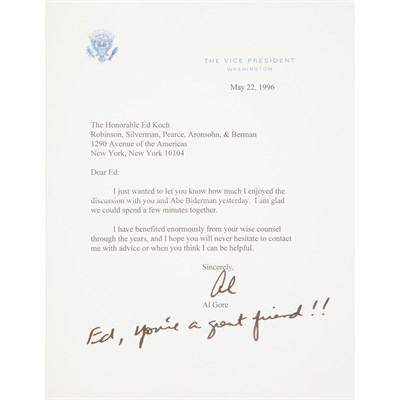 THE VICE PRESIDENT
WASHINGTON
May 22, 1996
The Honorable Ed Koch
Robinson, Silverman, Pearce, Aronsohn, & Berman
1290 Avenue of the Americas
New York, New York 10104
Dear Ed:
I just wanted to let you know how much I enjoyed the
discussion with you and Abe Biderman yesterday. I am glad
we could spend a few minutes together.
I have benefited enormously from your wise counsel
through the years, and I hope you will never hesitate to contact
me with advice or when you think I can be helpful.
Sincerely,
Al
Al Gore
Ed, you're a great friend!!